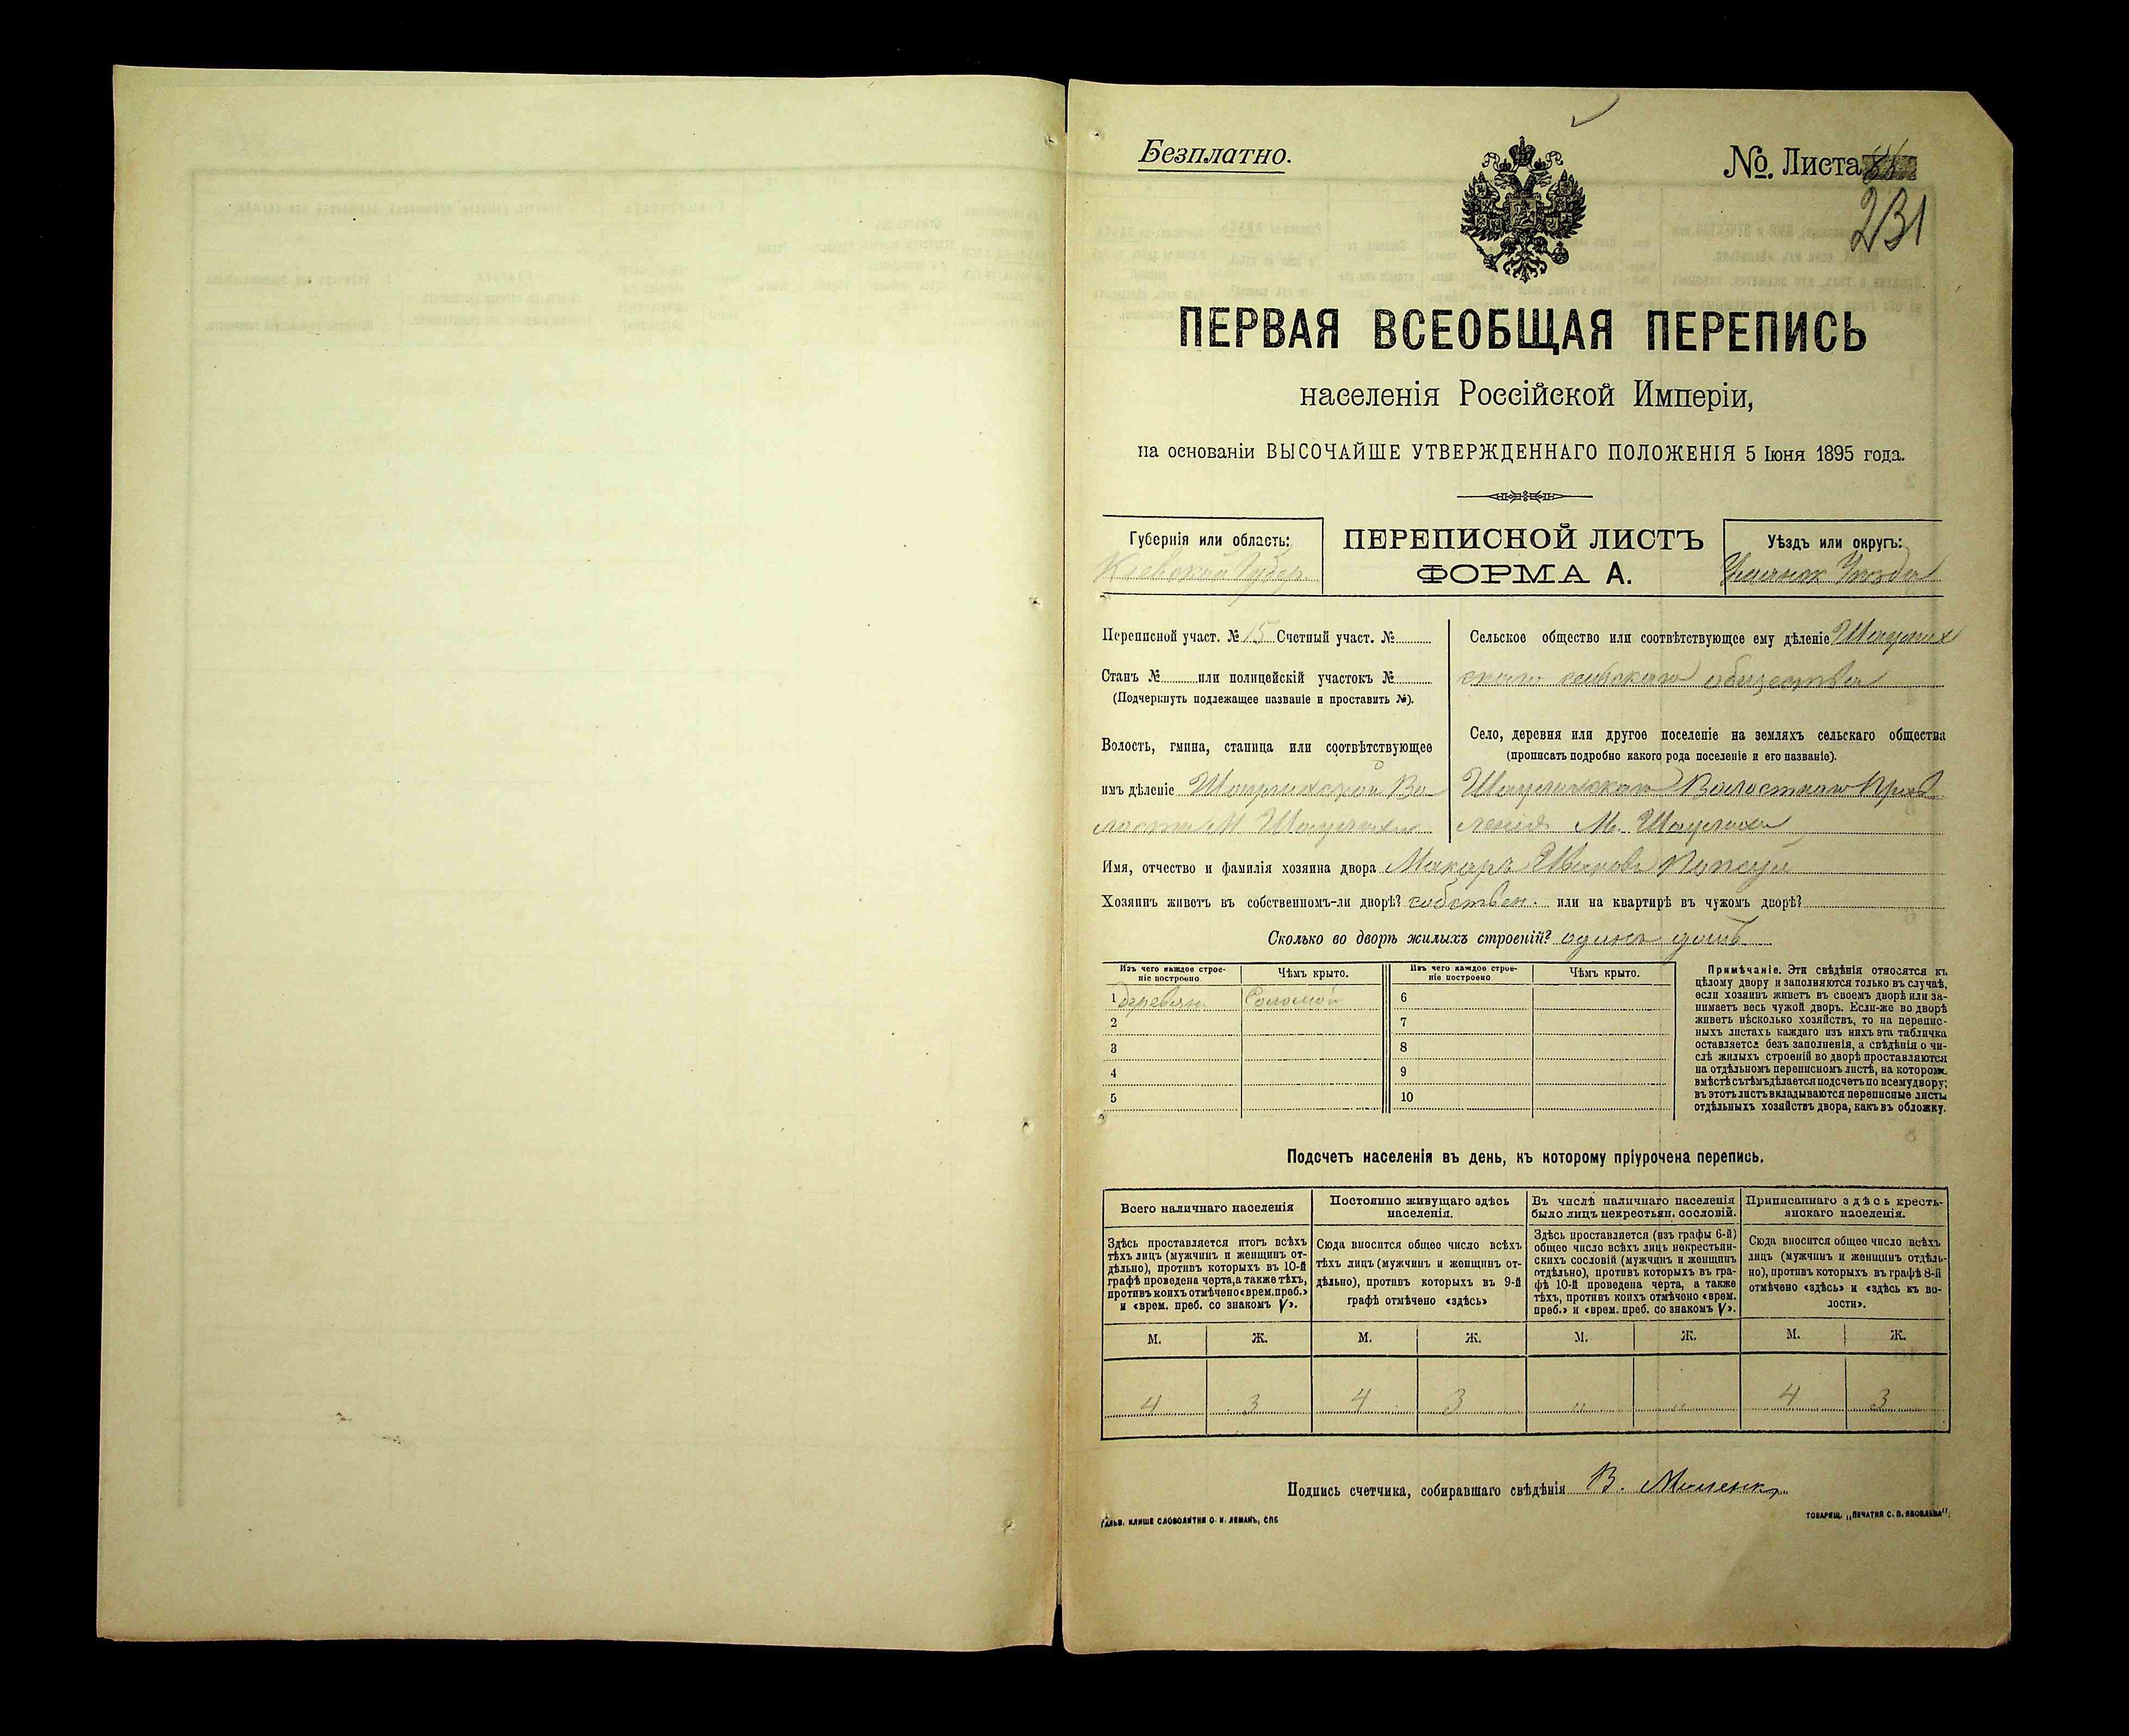 Безплатно.
№. Листа
231
ПЕРВАЯ ВСЕОБЩАЯ ПЕРЕПИСЬ
населенія Россійской Имперіи,
на основаніи ВЫСОЧАЙШЕ УТВЕРЖДЕННАГО ПОЛОЖЕНІЯ 5 Іюня 1895 года.
Губернія или область:
Кіевской Губер
ПЕРЕПИСНОЙ ЛИСТЪ
ФОРМА А.
Уѣздъ или округъ:
Уѣзда
Переписной участ. № 15 Счетный участ. №
Станъ № или полицейскій участокъ №
(Подчеркнуть подлежащее названіе и проставить №).
Волость, гмина, станица или соотвѣтствующее
имъ дѣленіе
Сельское общество или соотвѣтствующее ему дѣленіе
скаго сельскаго общества
Село, деревня или другое поселеніе на земляхъ сельскаго общества
(прописать подробно какого рода поселеніе и его названіе).
Волостнаго
ленія М.
Имя, отчество и фамилія хозяина двора Макаръ Ивановъ
Хозяинъ живетъ въ собственномъ-ли дворѣ? собствен. или на квартирѣ въ чужомъ дворѣ?
Сколько во дворѣ жилыхъ строеній? одинъ домъ
Изъ чего каждое строе-
ніе построено
Чѣмъ крыто.
Изъ чего каждое строе-
ніе построено
Чѣмъ крыто.
1 деревян Соломой
2
3
4
5
6
7
8
9
10
Примѣчаніе. Эти свѣдѣнія относятся къ
цѣлому двору и заполняются только въ случаѣ,
если хозяинъ живетъ въ своемъ дворѣ или за-
нимаетъ весь чужой дворъ. Если-же во дворѣ
живетъ нѣсколько хозяйствъ, то на перепис-
ныхъ листахъ каждаго изъ нихъ эта табличка
оставляется безъ заполненія, а свѣдѣнія о чи-
слѣ жилыхъ строеній во дворѣ проставляются
на отдѣльномъ переписномъ листѣ, на которомъ
вмѣстѣ съ тѣмъ дѣлается подсчетъ по всему двору;
въ этотъ листъ вкладываются переписные листы
отдѣльныхъ хозяйствъ двора, какъ въ обложку.
Подсчетъ населенія въ день, къ которому пріурочена перепись.
Всего наличнаго населенія
Здѣсь проставляется итогъ всѣхъ
тѣхъ лицъ (мужчинъ и женщинъ от-
дѣльно), противъ которыхъ въ 10-й
графѣ проведена черта, а также тѣхъ,
противъ коихъ отмѣчено «врем. преб.»
и «врем. преб. со знакомъ V».
Постоянно живущаго здѣсь
населенія.
Сюда вносится общее число всѣхъ
тѣхъ лицъ (мужчинъ и женщинъ от-
дѣльно), противъ которыхъ въ 9-й
графѣ отмѣчено «здѣсь»
Въ числѣ наличнаго населенія
было лицъ некрестьян. сословій.
Здѣсь проставляется (изъ графы 6-й)
общее число всѣхъ лицъ некрестьян-
скихъ сословій (мужчинъ и женщинъ
отдѣльно), противъ которыхъ въ гра-
фѣ 10-й проведена черта, а также
тѣхъ, противъ коихъ отмѣчено «врем.
преб.» и «врем. преб. со знакомъ V».
Приписаннаго здѣсь кресть-
янскаго населенія.
Сюда вносится общее число всѣхъ
лицъ (мужчинъ и женщинъ отдѣль-
но), противъ которыхъ въ графѣ 8-й
отмѣчено «здѣсь» и «здѣсь къ во-
лости».
М. Ж. М. Ж. М. Ж. М. Ж.
4 3 4 3 " " 4 3
Подпись счетчика, собиравшаго свѣдѣнія В.
ГАЛЬВ. КЛИШЕ СЛОВОЛИТНИ О. И. ЛЕМАНЪ, СПБ
ТОВАРИЩ. „ПЕЧАТНЯ С. П. ЯКОВЛЕВА".